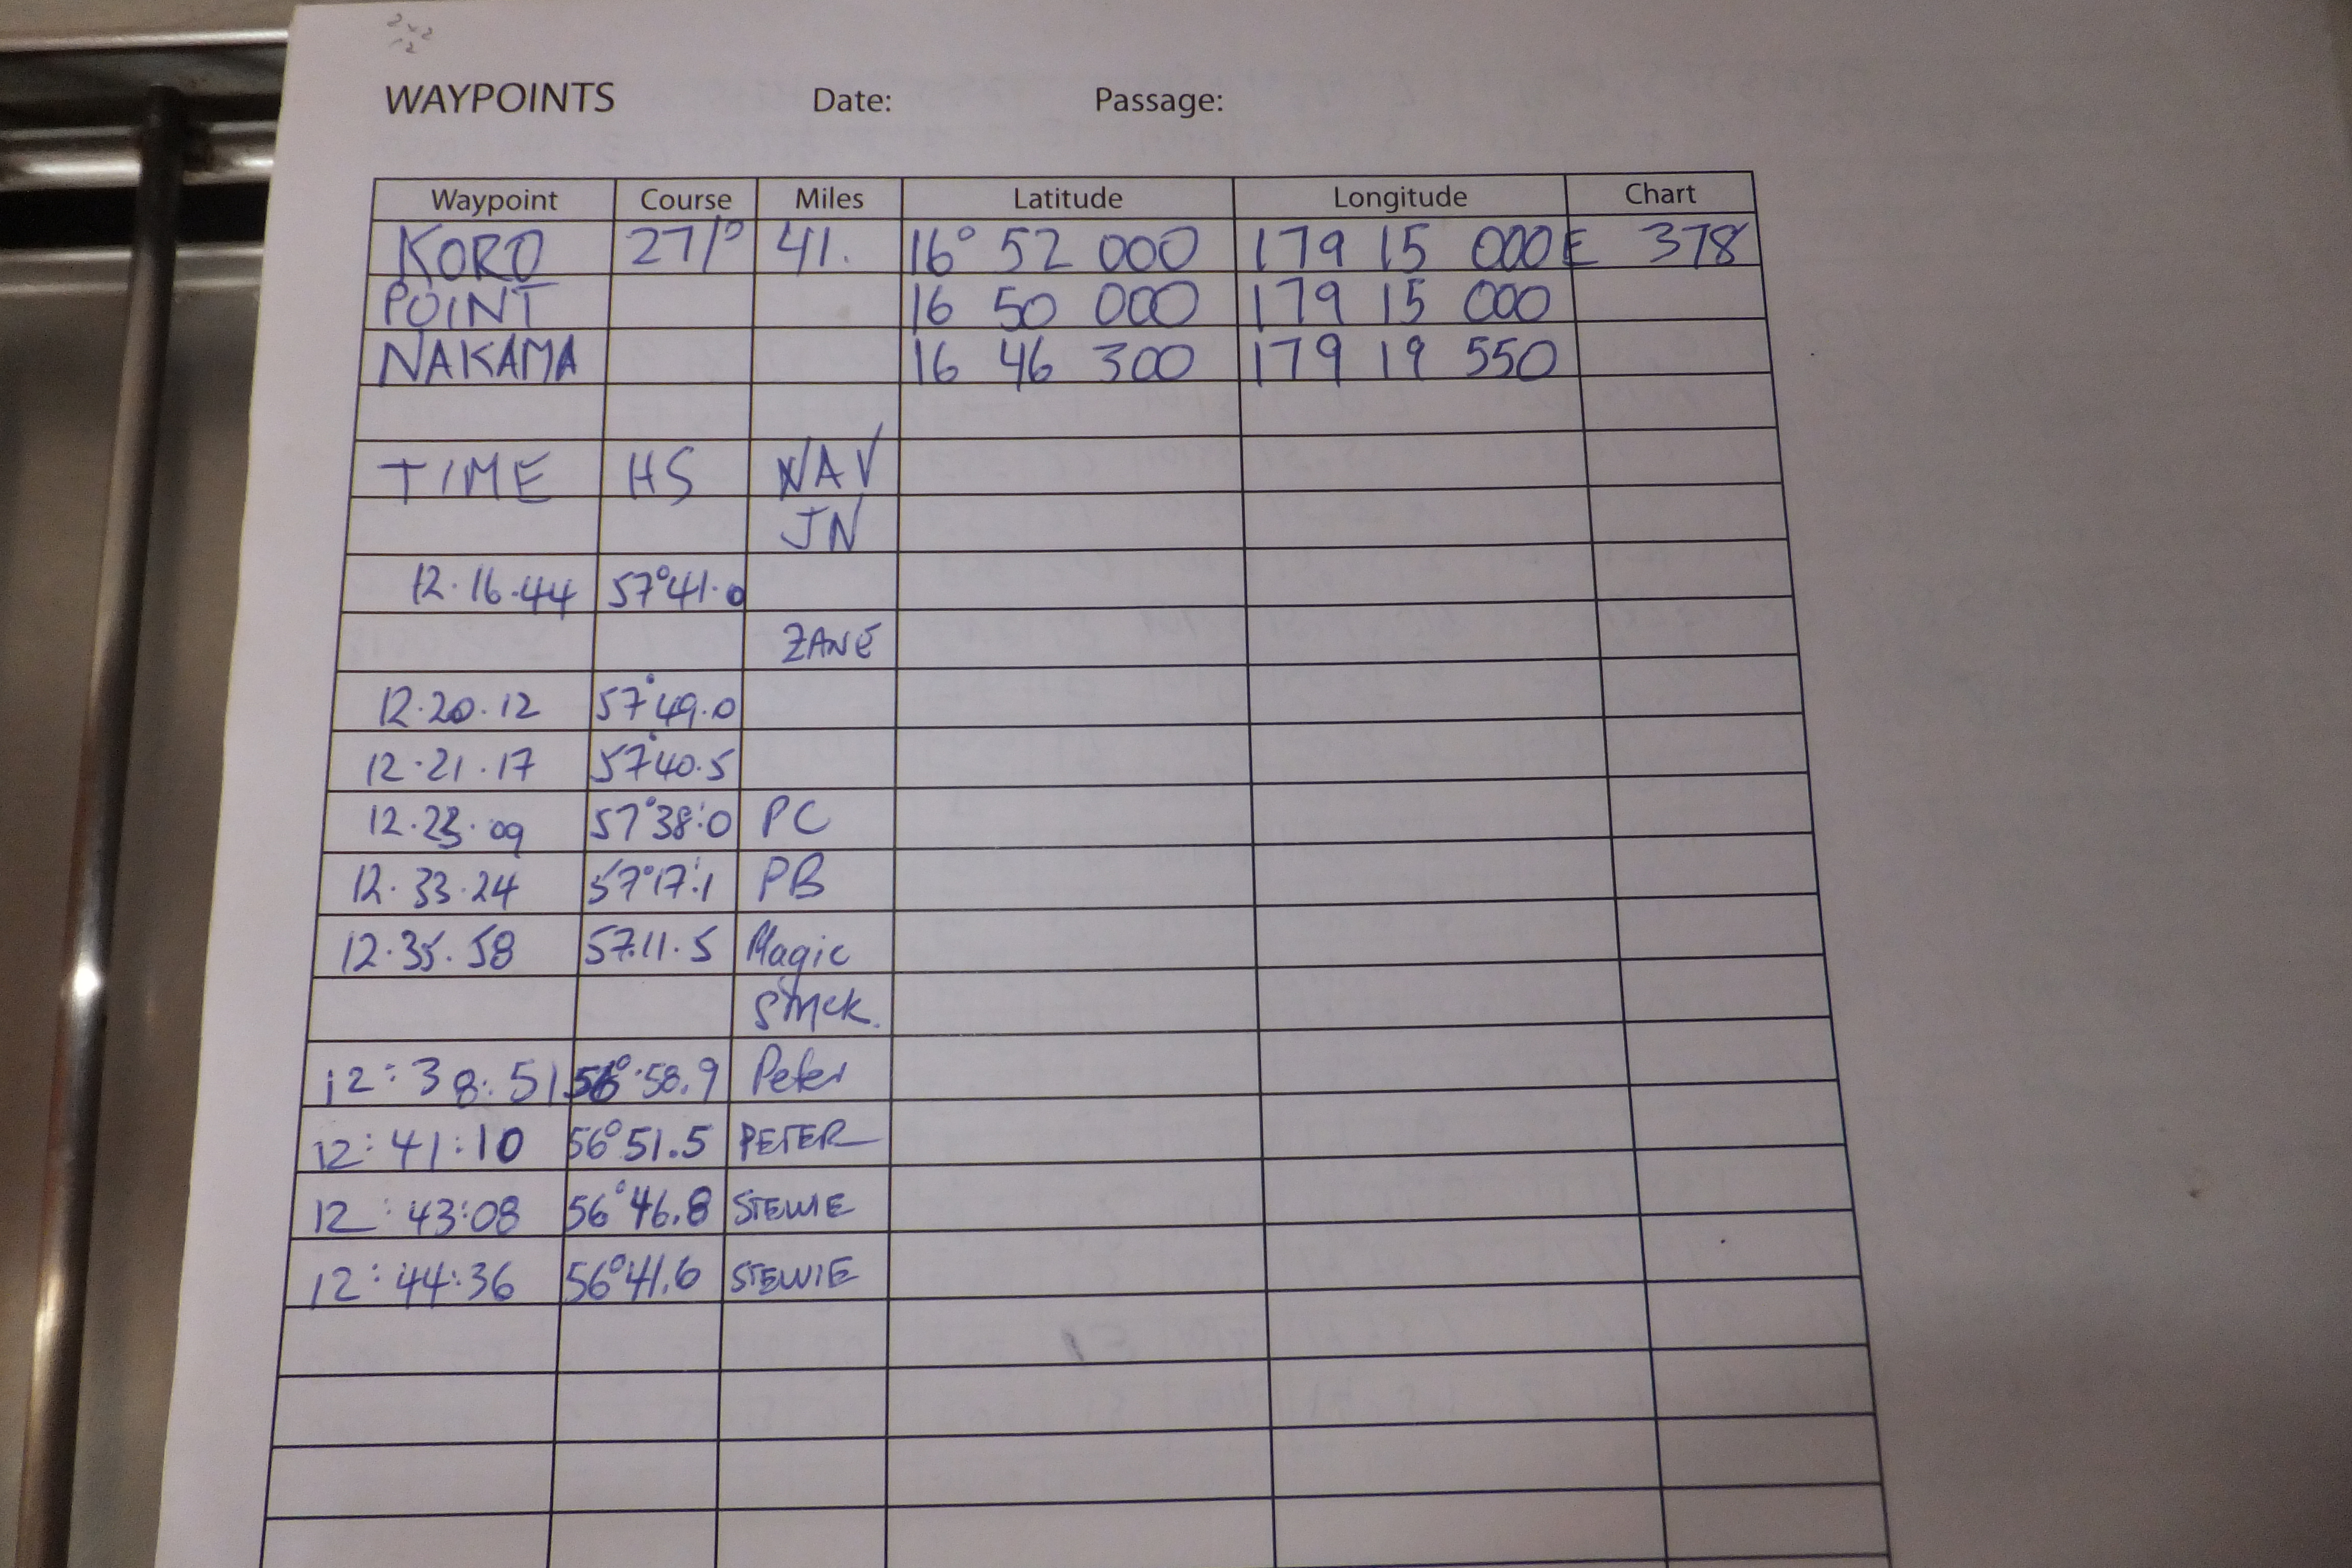 WAYPOINTS Date: Passage:
Waypoint Course Miles Latitude Longitude Chart
KORO 271° 41. 16° 52 000 179 15 000E 378
POINT 16 50 000 179 15 000
NAKAMA 16 46 300 179 19 550
TIME HS NAV
JN
12.16.44 57°41.0
ZANE
12.20.12 57°49.0
12.21.17 57°40.5
12.23.09 57°38:0 PC
12.33.24 57°17:1 PB
12.35.58 57.11.5 Magic
12:38:51 56°58.9 Peter
12:41:10 56°51.5 PETER
12:43:08 56°46.8 STEWIE
12:44:36 56°41.6 STEWIE